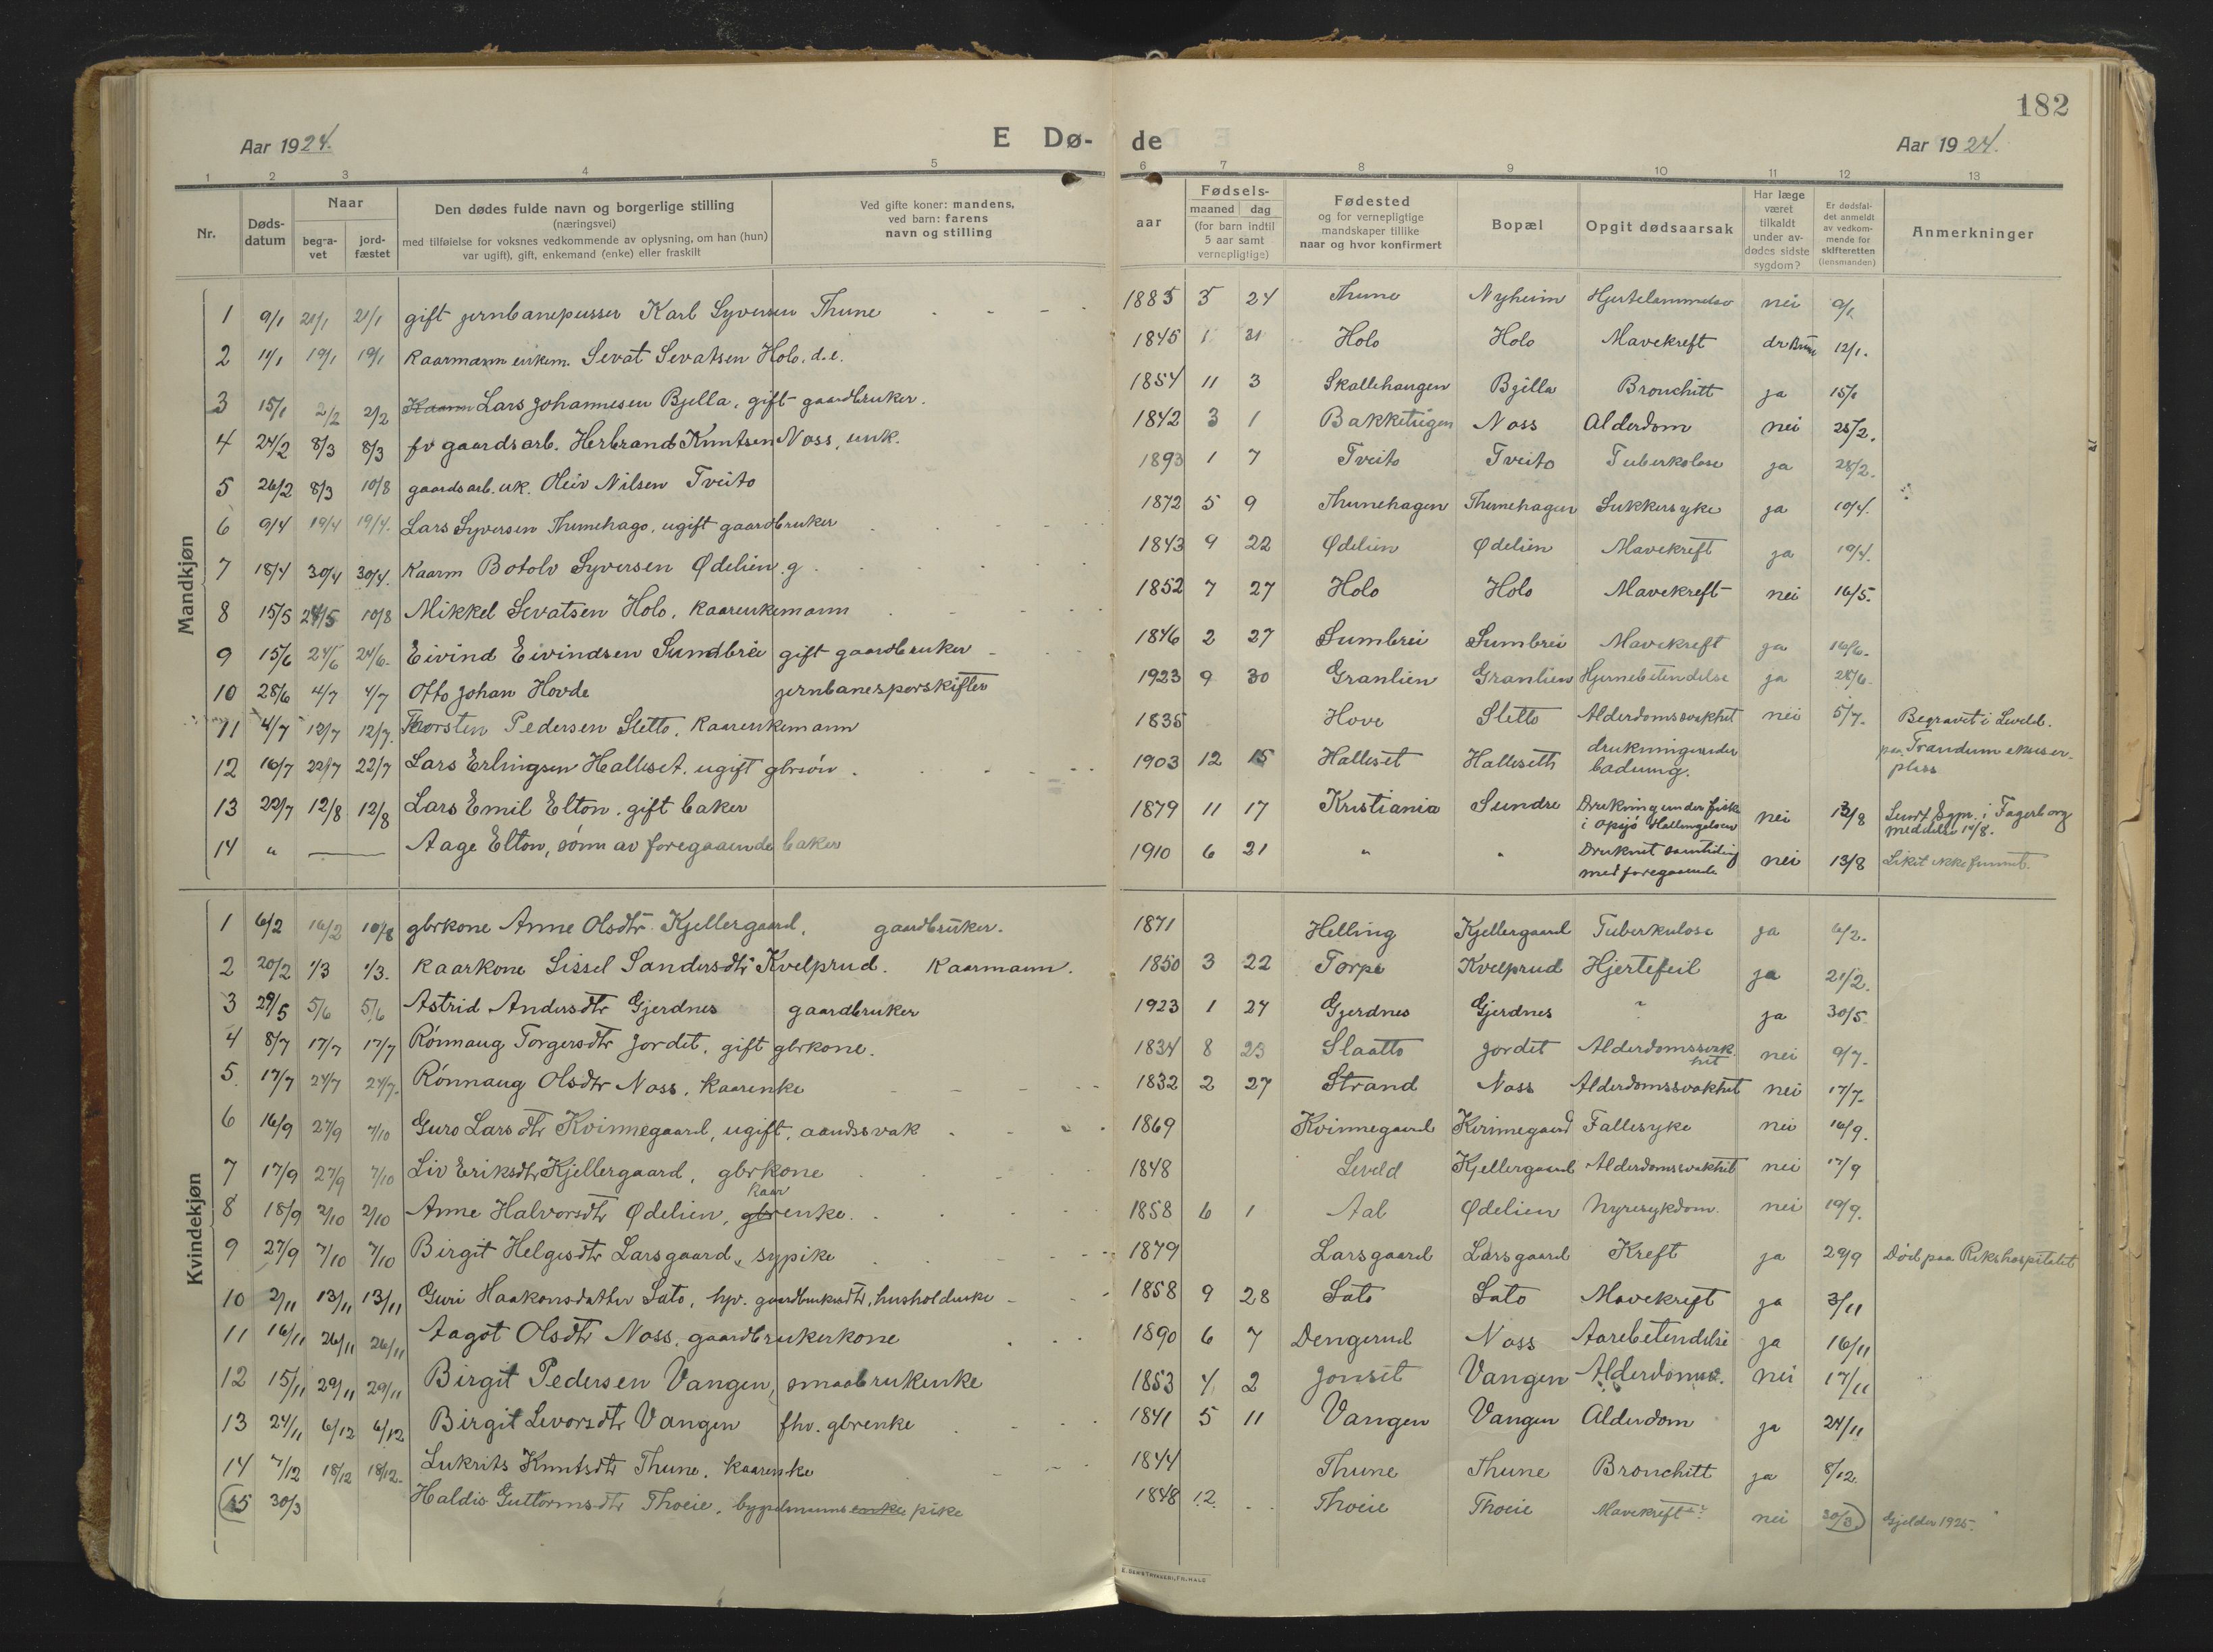 182
Aar 1924.
E Dø-
de
Aar 1924.
1 2 3 4 5 6 7 8 9 10 11 12 13
Nr.
Døds-
datum
Naar
begra-
vet
jord-
fæstet
Den dødes fulde navn og borgerlige stilling
(næringsvei)
med tilføielse for voksnes vedkommende av oplysning, om han (hun)
var ugift), gift, enkemand (enke) eller fraskilt
Ved gifte koner: mandens,
ved barn: farens
navn og stilling
aar
Fødsels-
maaned dag
(for barn indtil
5 aar samt
vernepligtige)
Fødested
og for vernepligtige
mandskaper tillike
naar og hvor konfirmert
Bopæl
Opgit dødsaarsak
Har læge
været
tilkaldt
under av-
dødes sidste
sygdom?
Er dødsfal-
det anmeldt
av vedkom-
mende for
skifteretten
(lensmanden)
Anmerkninger
Mandkjøn
1 9/1 21/1 21/1 gift jernbanepusser Karl Syversen Thune 1885 5 24 Thune Nyheim Hjertelammelse nei 9/1
2 11/1 19/1 19/1 Kaarmann enkem. Sevat Sevatsen Holo. d.e. 1845 1 31 Holo Holo Mavekreft dr 12/1.
3 15/1 2/2 2/2 Kaarm Lars Johannesen Bjella, gift gaardbruker. 1854 11 3 Skallehaugen Bjella Bronchitt ja 15/1
4 24/2 8/3 8/3 fv gaardsarb. Herbrand Knutsen Noss, enk. 1842 3 1 Noss Alderdom nei 25/2.
5 26/2 8/3 10/8 gaardsarb. uk. Oleiv Nilsen Tveito 1893 1 7 Tveito Tveito Tuberkolose ja 28/2.
6 9/4 19/4 19/4. Lars Syversen Thunehago, ugift gaardbruker 1872 5 9 Thunehagen Thunehagen Sukkersyke ja 10/4.
7 18/4 30/4 30/4. Kaarm Botolv Syversen Ødelien. g. 1843 9 22 Ødelien Ødelien Mavekreft ja 19/4.
8 15/5 24/5 10/8 Mikkel Sevatsen Holo, Kaarenkemann 1852 7 27 Holo Holo Mavekreft nei 16/5.
9 15/6 24/6 24/6. Eivind Eivindsen Sundbrei gift gaardbruker 1846 2 27 Sumbrei Sumbrei Mavekreft ja 16/6.
10 28/6 4/7 4/7 Otto Johan Hovde jernbanesporskifter 1923 9 30 Granlien Granlien Hjernebetendelse ja 28/6.
11 4/7 12/7 12/7. Thorsten Pedersen Sletto, Kaarenkemann 1835 Hove Sletto Alderdomssvakhet nei 5/7. Begravet i Levdd.
12 16/7 22/7 22/7 Lars Erlingsen Halleset. ugift gbrsön. 1903 12 15 Halleset Halleseth drukning under
badning. paa Trandum ekser-
plass
13 22/7 12/8 12/8 Lars Emil Elton. gift baker 1879 11 17 Kristiania Sundre Drukning under fiske
i opsjö Hallingdalen nei 13/8 Sgpr. i Fagerborg
meddelt 14/8.
14 " — Aage Elton, sönn av foregaaende baker 1910 6 21 " " Druknet samtidig
med foregaaende nei 13/8 Liket ikke funnet.
Kvindekjøn
1 6/2 16/2 10/8 gbrkone Anne Olsdtr. Kjellergaard. gaardbruker. 1871 Helling Kjellergaard Tuberkulose ja 6/2.
2 20/2 1/3 1/3. Kaarkone Sissel Sandersdtr Kvelprud. Kaarmann. 1850 3 22 Torpe Kvelprud Hjertefeil ja 21/2.
3 29/5 5/6 5/6 Astrid Andersdtr Gjerdnes gaardbruker 1923 1 24 Gjerdnes Gjerdnes ? ja 30/5
4 8/7 17/7 17/7 Rönnaug Torgersdtr Jordet, gift gbrkone. 1834 8 23 Slaatto Jordet Alderdomssvak
het nei 9/7.
5. 17/7 24/7 24/7. Rönnaug Olsdtr Noss, Kaarenke 1832 2 27 Strand Noss Alderdomssvakhet nei 17/7.
6 16/9 27/9 7/10 Guro Larsdtr Kvinnegaard, ugift, aandssvak 1869 Kvinnegaard Kvinnegaard Fallesyke nei 16/9.
7 17/9 27/9 7/10 Liv Eriksdtr Kjellergaard, gbrkone 1848 Levdd Kjellergaard Alderdomssvakhet nei 17/9
8 18/9 2/10 2/10 Anne Halvorsdtr Ødelien, gbr kaar enke. 1858 6 1 Aal Ødelien Nyresykdom. nei 19/9.
9 27/9 7/10 7/10 Birgit Helgesdtr Larsgaard, sypike 1879 Larsgaard Larsgaard Kreft ja 29/9 Död paa Rikshospitalet
10 2/11 13/11 13/11 Guri Haakonsdatter Sato, hp. gaardbrukerdtr, husholderske 1858 9 28 Sato Sato Mavekreft ja 3/11
11 16/11 26/11 26/11 Aagot Olsdtr Noss, gaardbrukerkone 1890 6 7 Dengerud Noss Aarebetendelse ja 16/11
12 15/11 29/11 29/11 Birgit Pedersen Vangen, smaabrukenke 1853 4 2 Jonset Vangen Alderdomss. nei 17/11
13 24/11 6/12 6/12 Birgit Levorsdtr Vangen fhv. gbrenke 1841 5 11 Vangen Vangen Alderdom ja 24/11
14 7/12 18/12 18/12. Lukrits Knutsdtr Thune. Kaarenke 1844 Thune Thune Bronchitt ja 8/12.
15 30/3 Haldis Guttormsdtr Thoeie, bygselmanns enke pike 1848 12 Thoeie Thoeie Mavekreft? nei 30/3 Gjelder 1925.